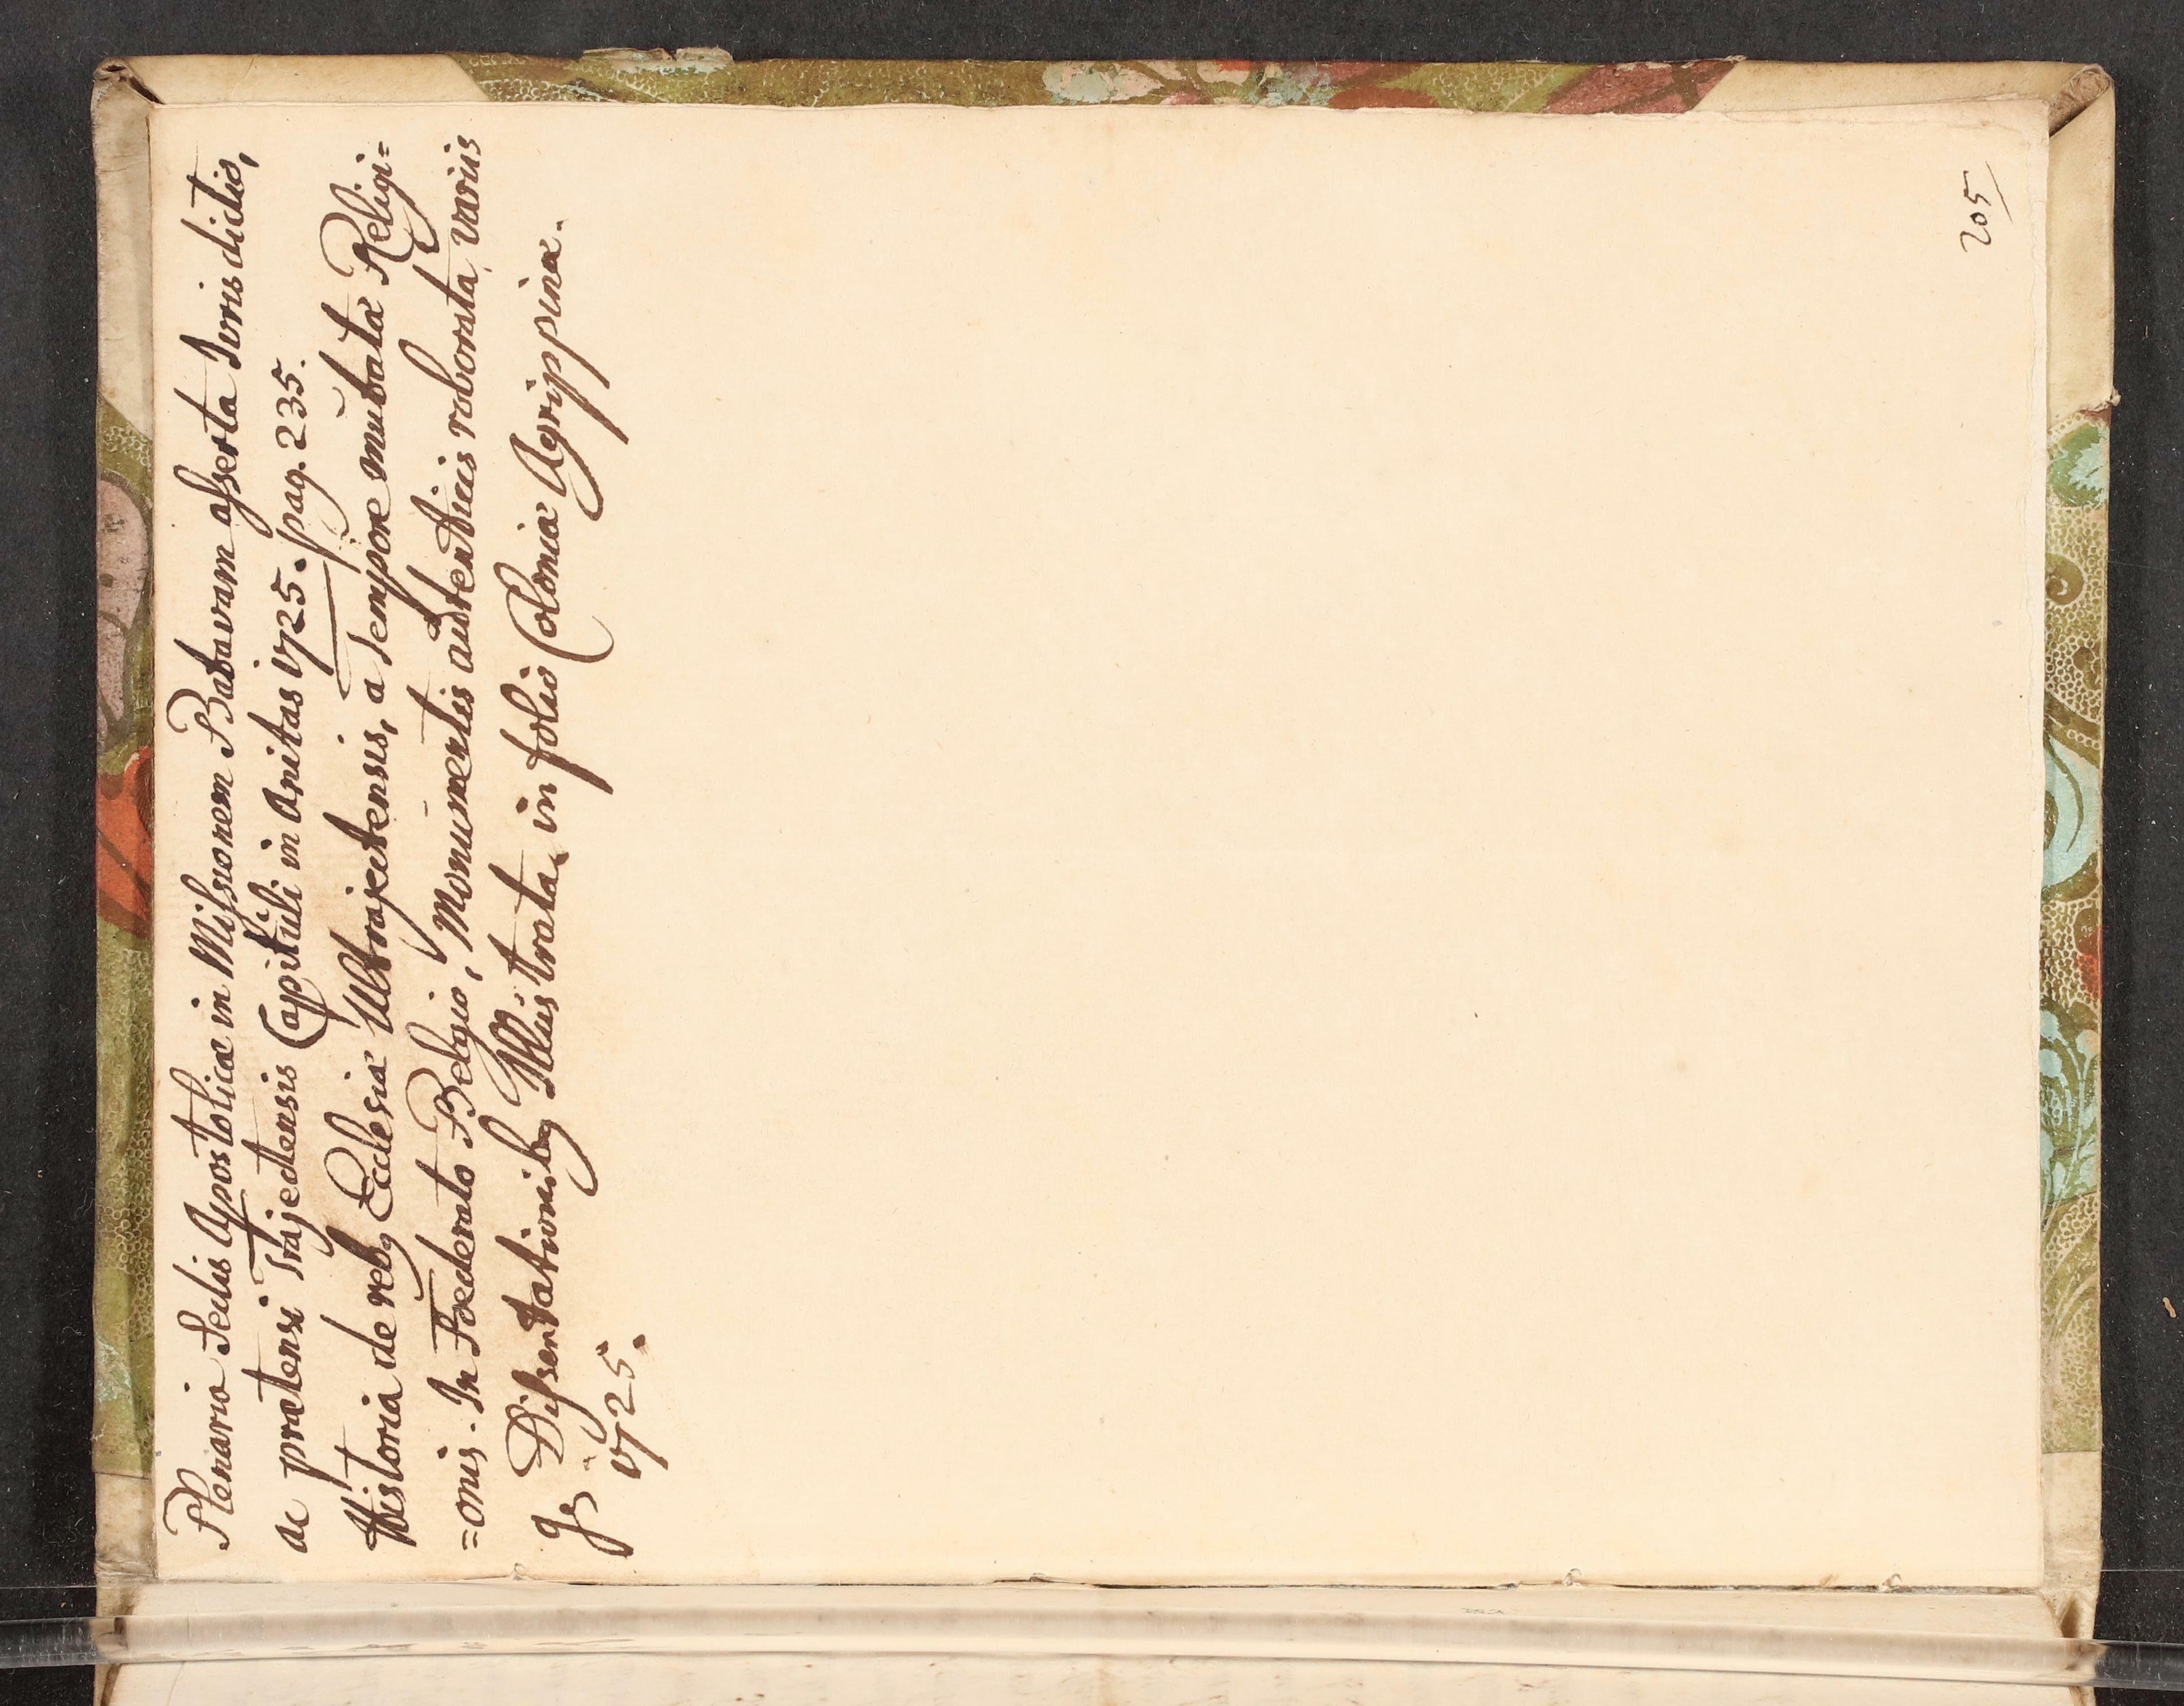 Plenario Sedis Apostolicæ in Missionem Batavam asserta Jurisdictio,
ac prætensi Trajectensis Capituli in Anitas 1725. pag. 235.
Historia de rebq Ecclesiæ Ultrajectensis, a Tempore mutatæ Religi=
=onis. In Fœderato Belgio, Monumentis autenticis roborata, variis
Dissertationibq Illustrata, in folio Coloniæ Agrippinæ.
1725.
205